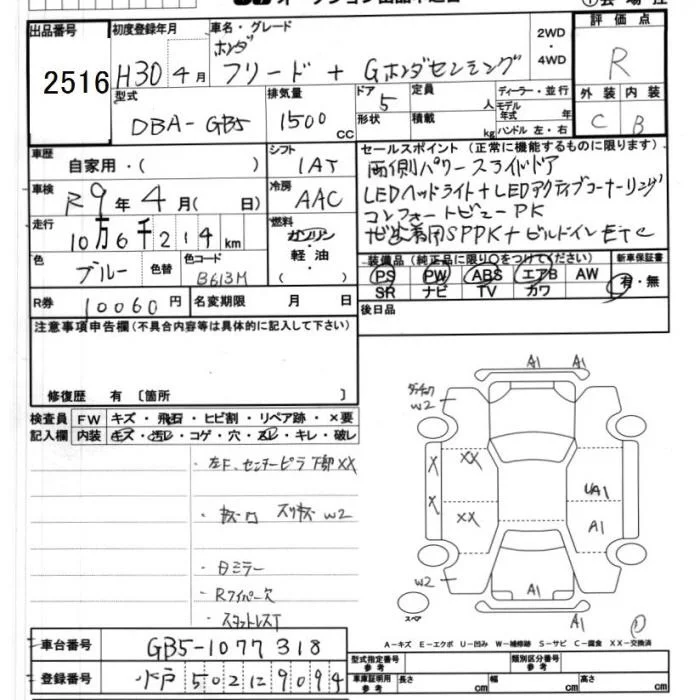 出品番号 初度登録年月 車名・グレード 2WD・4WD 評価点
2516 H30年4月 ホンダ フリード + Gホンダセンシング R
型式 排気量 ドア 定員 ディーラー・並行 外装 内装
DBA-GB5 1500cc 5 人 モデル年式 年 C B
形状 積載 kg ハンドル 左・右
車歴 シフト セールスポイント (正常に機能するものに限ります)
自家用・( ) IAT 両側パワースライドドア
車検 冷房 LEDヘッドライト+LEDアクティブコーナーリング
R9年4月( 日) AAC コンフォートビューPK
走行 燃料 SPPK+ビルトインETC
10万6千214km ガソリン・軽油
色 色替 色コード 装備品 (純正品に限り○をつけて下さい) 新車保証書
ブルー B613M PS PW ABS エアB AW 有・無
SR ナビ TV カワ
R券 10060円 名変期限 月 日 後日品
注意事項申告欄(不具合内容等は具体的に記入して下さい)
修復歴 有 〔箇所 〕
検査員 FW キズ・飛石・ヒビ割・リペア跡・×要
記入欄 内装 キズ・汚レ・コゲ・穴・スレ・キレ・破レ
A1 A1
W2
・左F、センターピラ下部XX
X XX
UA1
X XX A1
W2
・日ミラー
W2 A1
・Rワイパー欠
・スタットレスT
A1
スペア
A-キズ E-エクボ U-凹み W-補修跡 S-サビ C-腐食 XX-交換済
車台番号 GB5-1077318
型式指定番号 参考 類別区分番号 参考
登録番号 水戸 502 に 9094
車庫証明用 参考 長さ cm 幅 cm 高さ cm